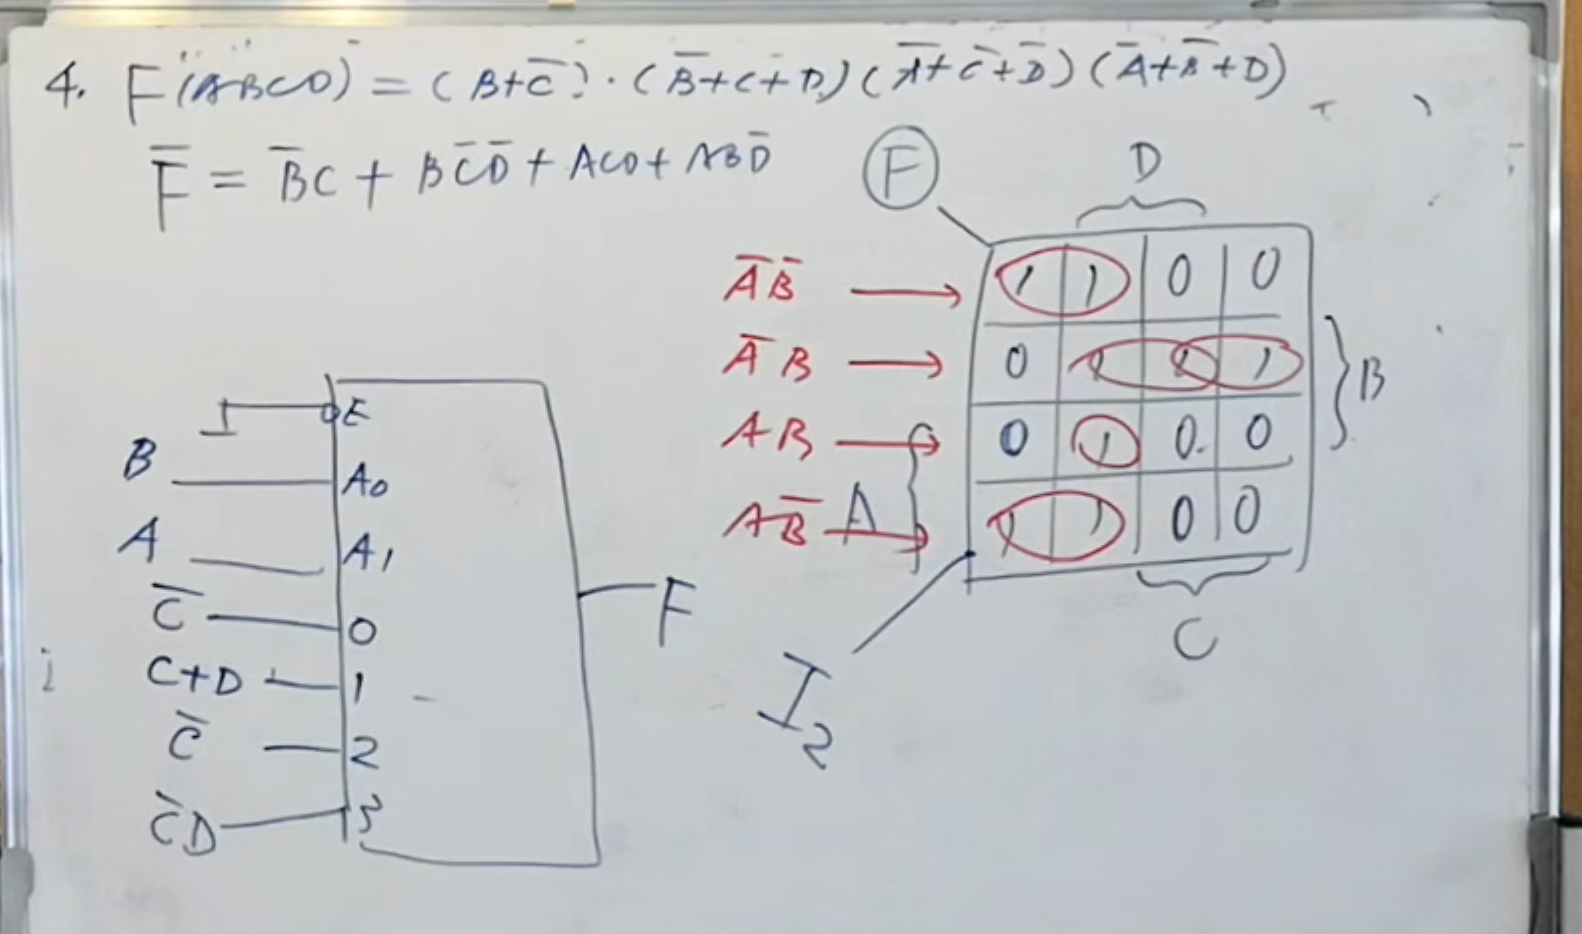 4. F(ABCD) = (B+C̅)·(B̅+C+D)(A̅+C̅+D̅)(A̅+B̅+D)
F̅ = B̅C + BC̅D̅ + ACD + ABD̅
F
D
A̅B̅ → 1 1 0 0
A̅B → 0 1 1 1
AB → 0 1 0 0
AB̅ → 1 1 0 0
A
B
C
I₂
E
B A₀
A A₁
C̅ 0
C+D 1
C̅ 2
C̅D 3
F